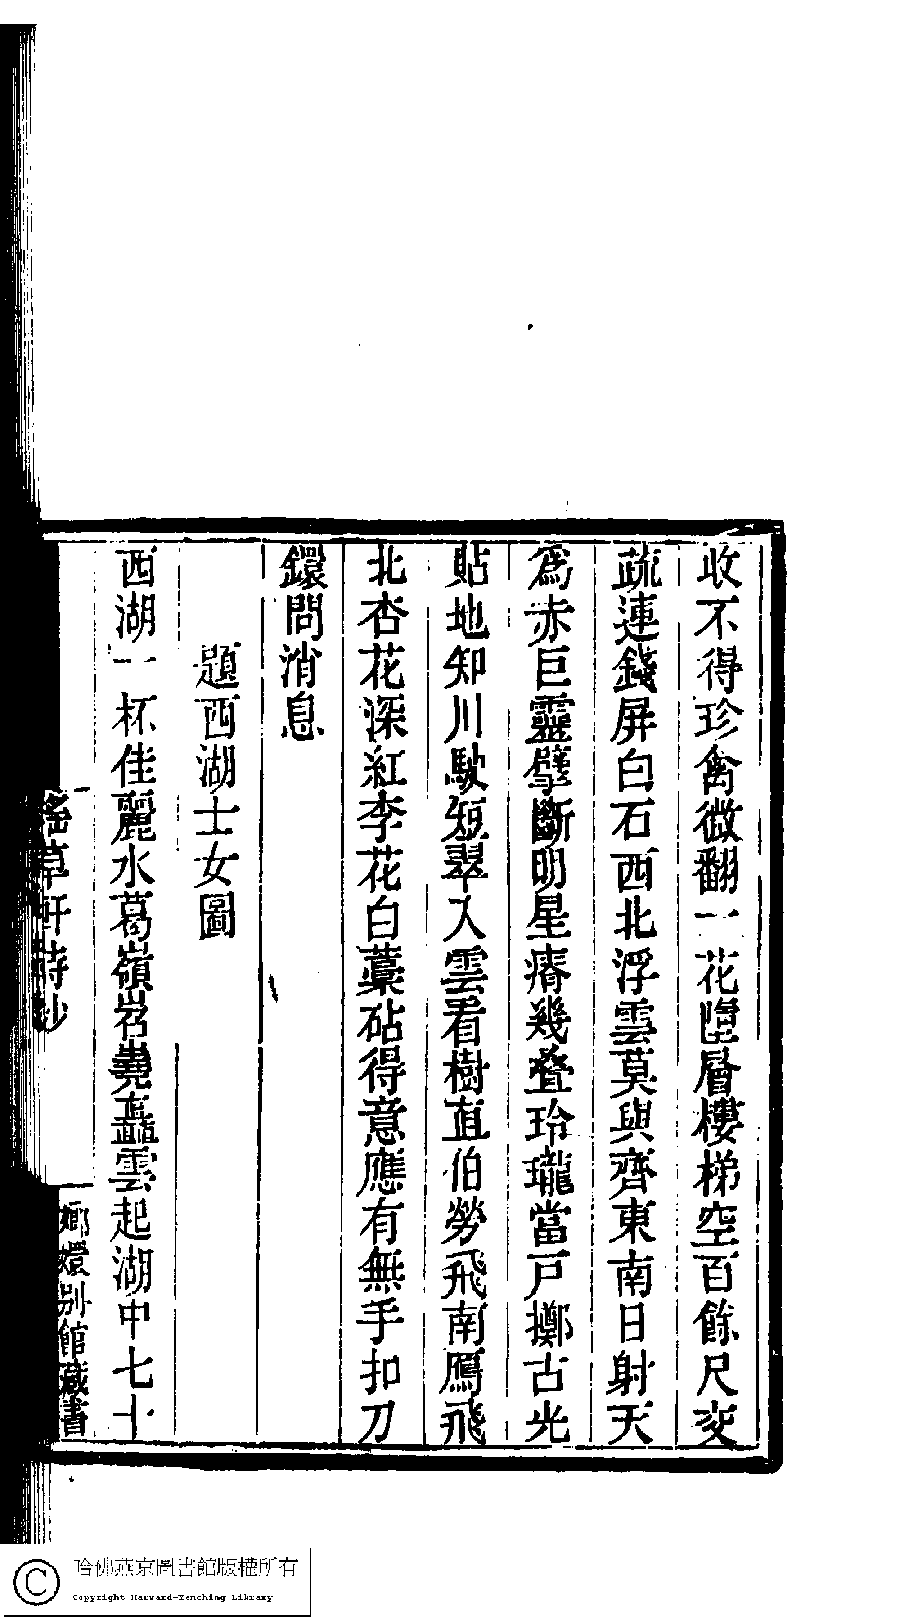 收不得珍禽微翻一花墮層樓梯空百餘尺交
疏連錢屏白石西北浮雲莫與齊東南日射天
爲赤巨靈擘斷明星瘠幾叠玲瓏當戸擲古光
貼地知川駛短翠入雲看樹直伯勞飛南鴈飛
北杏花深紅李花白藁砧得意應有無手扣刀
鐶問消息
題西湖士女圖
西湖一杯佳麗水葛嶺岧嶤矗雲起湖中七十
瑤草軒詩鈔
嫏嬛别館藏書
哈佛燕京圖書館版權所有
Copyright Harvard-Yenching Library